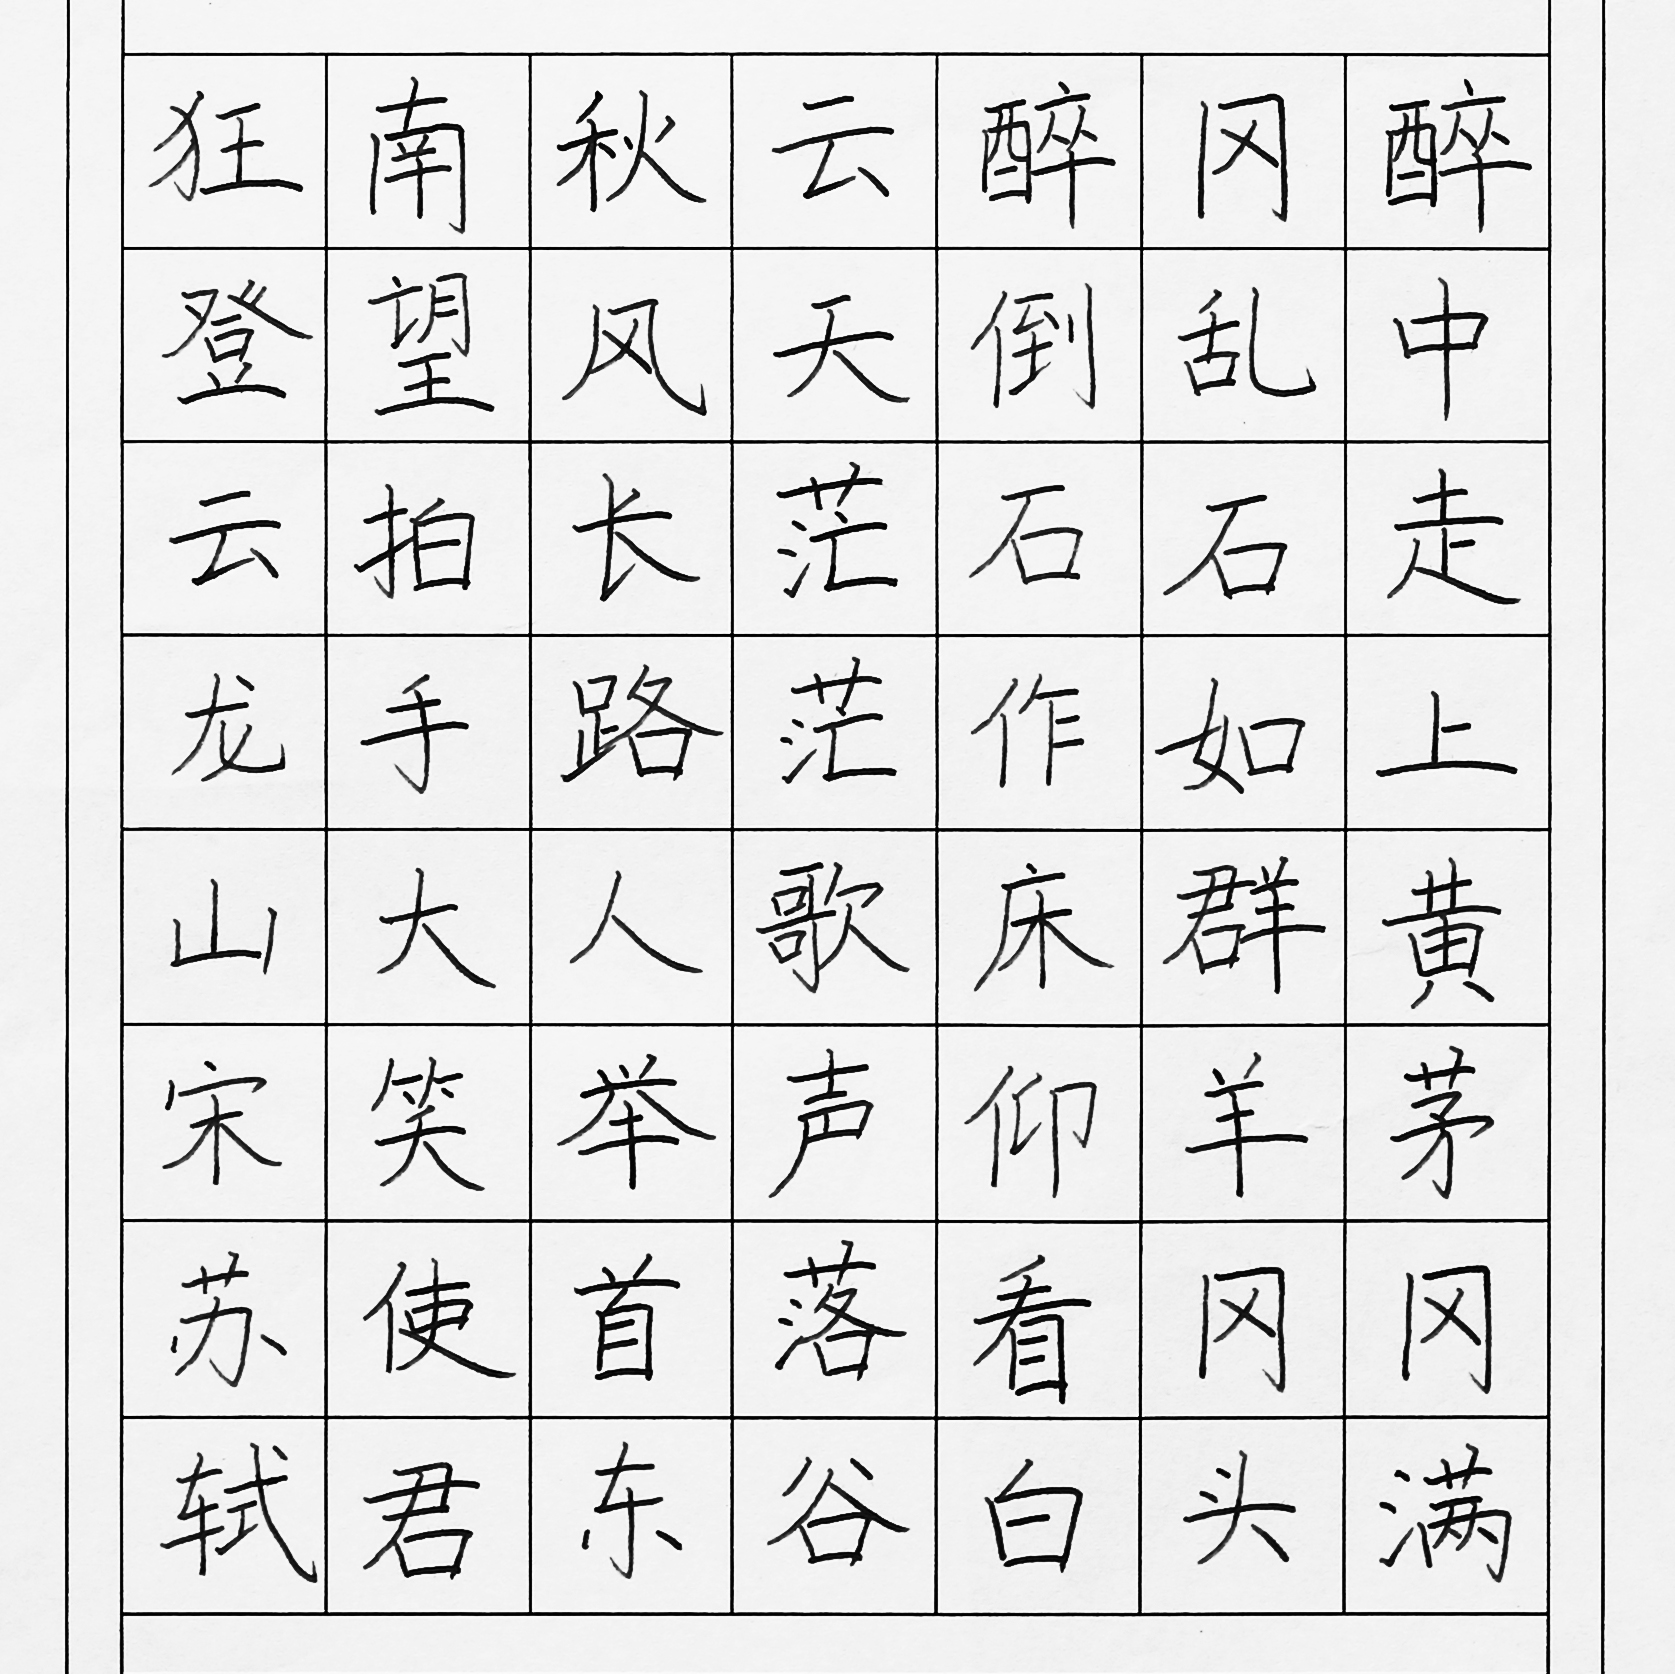 醉中走上黄茅冈满
冈乱石如群羊冈头
醉倒石作床仰看白
云天茫茫歌声落谷
秋风长路人举首东
南望拍手大笑使君
狂登云龙山宋苏轼